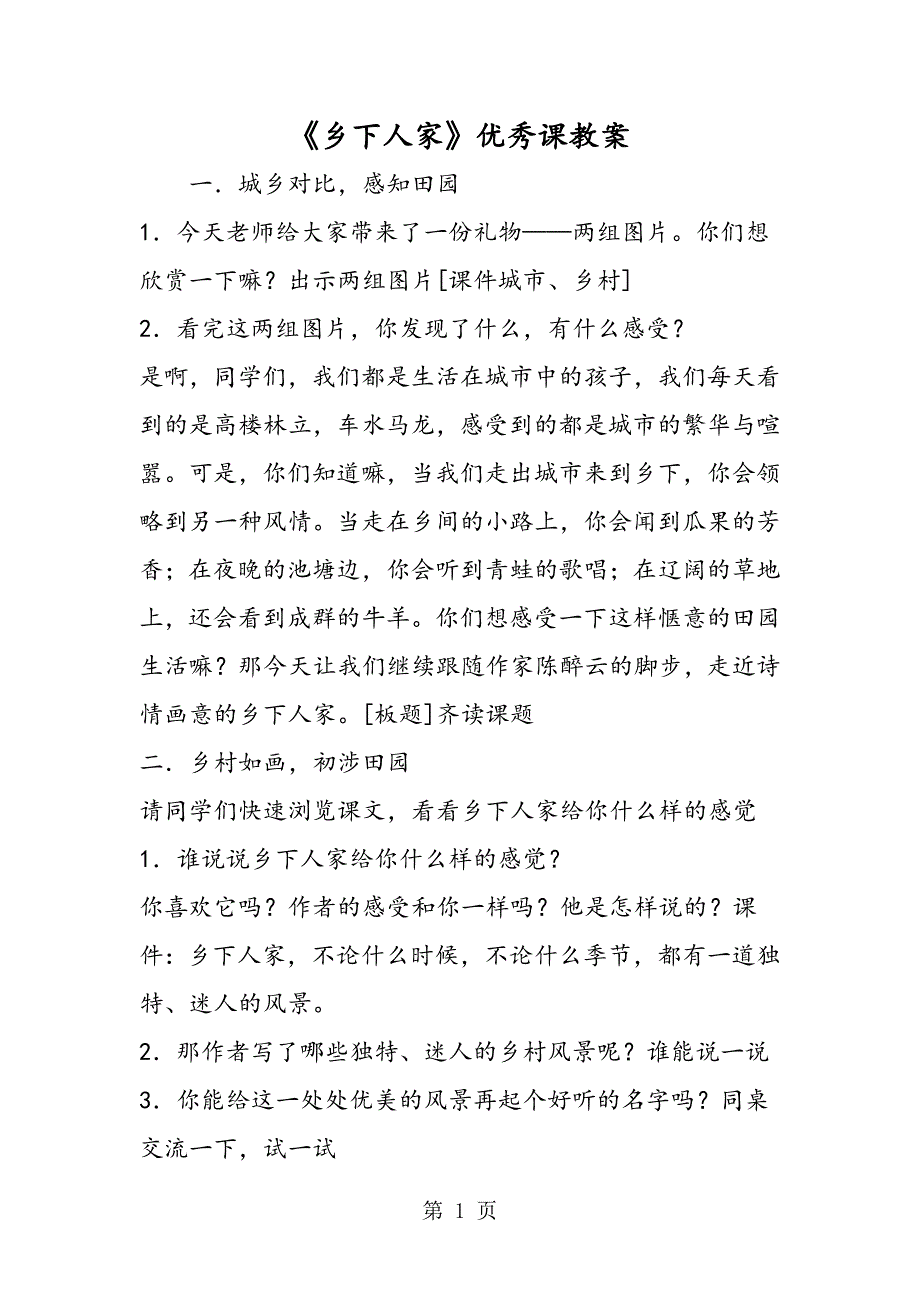 《乡下人家》优秀课教案
一．城乡对比，感知田园
1．今天老师给大家带来了一份礼物——两组图片。你们想
欣赏一下嘛？出示两组图片[课件城市、乡村]
2．看完这两组图片，你发现了什么，有什么感受？
是啊，同学们，我们都是生活在城市中的孩子，我们每天看
到的是高楼林立，车水马龙，感受到的都是城市的繁华与喧
嚣。可是，你们知道嘛，当我们走出城市来到乡下，你会领
略到另一种风情。当走在乡间的小路上，你会闻到瓜果的芳
香；在夜晚的池塘边，你会听到青蛙的歌唱；在辽阔的草地
上，还会看到成群的牛羊。你们想感受一下这样惬意的田园
生活嘛？那今天让我们继续跟随作家陈醉云的脚步，走近诗
情画意的乡下人家。[板题]齐读课题
二．乡村如画，初涉田园
请同学们快速浏览课文，看看乡下人家给你什么样的感觉
1．谁说说乡下人家给你什么样的感觉？
你喜欢它吗？作者的感受和你一样吗？他是怎样说的？课
件：乡下人家，不论什么时候，不论什么季节，都有一道独
特、迷人的风景。
2．那作者写了哪些独特、迷人的乡村风景呢？谁能说一说
3．你能给这一处处优美的风景再起个好听的名字吗？同桌
交流一下，试一试
第 1 页